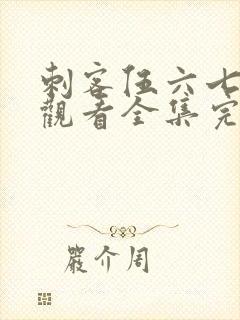 刺客伍六七
觀看全集完
嚴介周